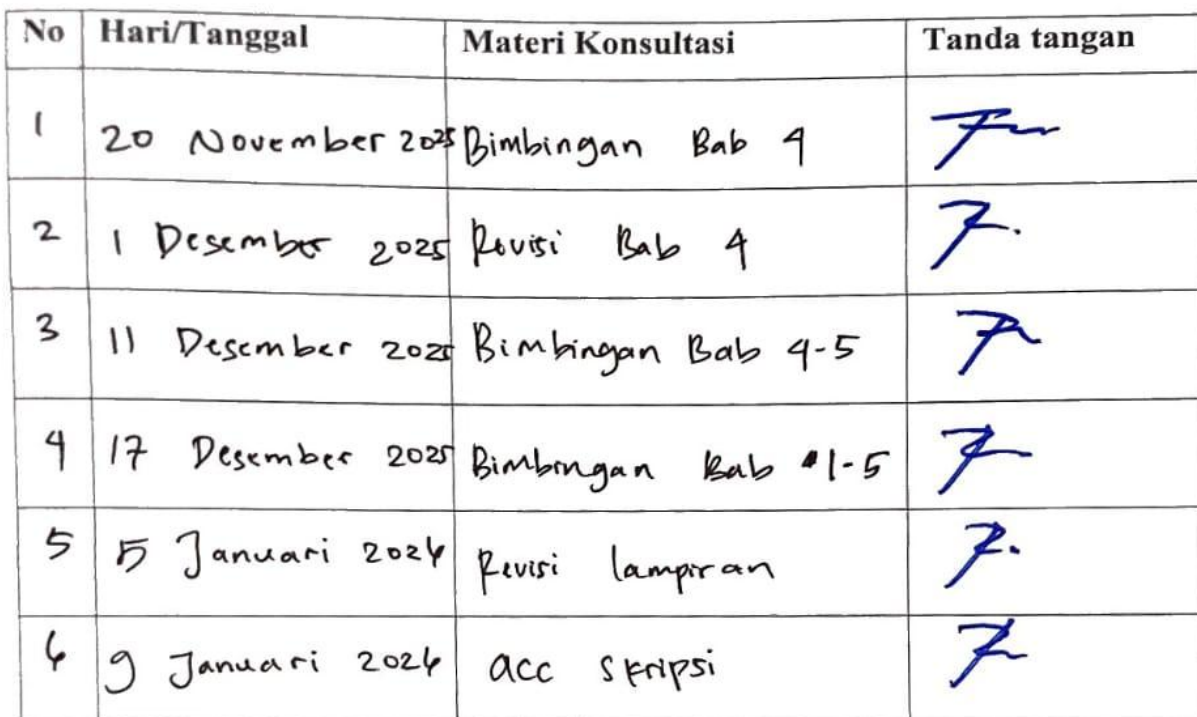 No Hari/Tanggal Materi Konsultasi Tanda tangan
1 20 November 2025 Bimbingan Bab 4
2 1 Desember 2025 Revisi Bab 4
3 11 Desember 2025 Bimbingan Bab 4-5
4 17 Desember 2025 Bimbingan Bab 1-5
5 5 Januari 2026 Revisi lampiran
6 9 Januari 2026 acc skripsi